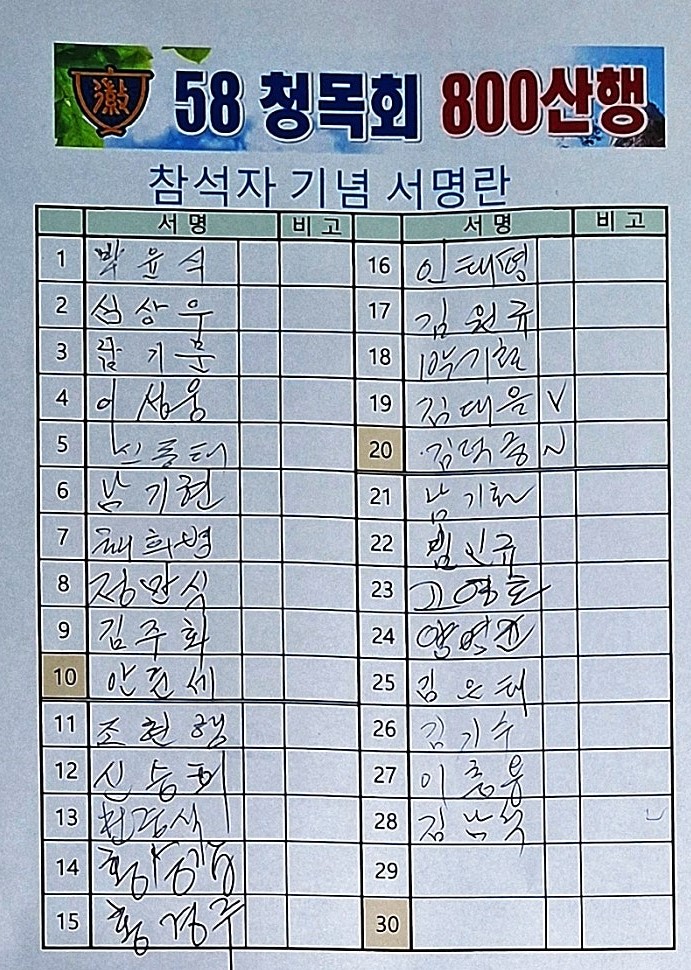 徽 58 청목회 800산행
참석자 기념 서명란
서명 비고 서명 비고
1 박윤식 16 인태영
2 심상우 17 김원규
3 기문 18 박기철
4 이성웅 19 김대음 V
5 20 김덕중
6 남기현 21 남기화
7 채희병 22 인규
8 정만식 23 고영호
9 김주화 24
10 안면세 25 김은태
11 조현행 26 김기수
12 신승희 27 이종융
13 28 김남석
14 29
15 황경주 30